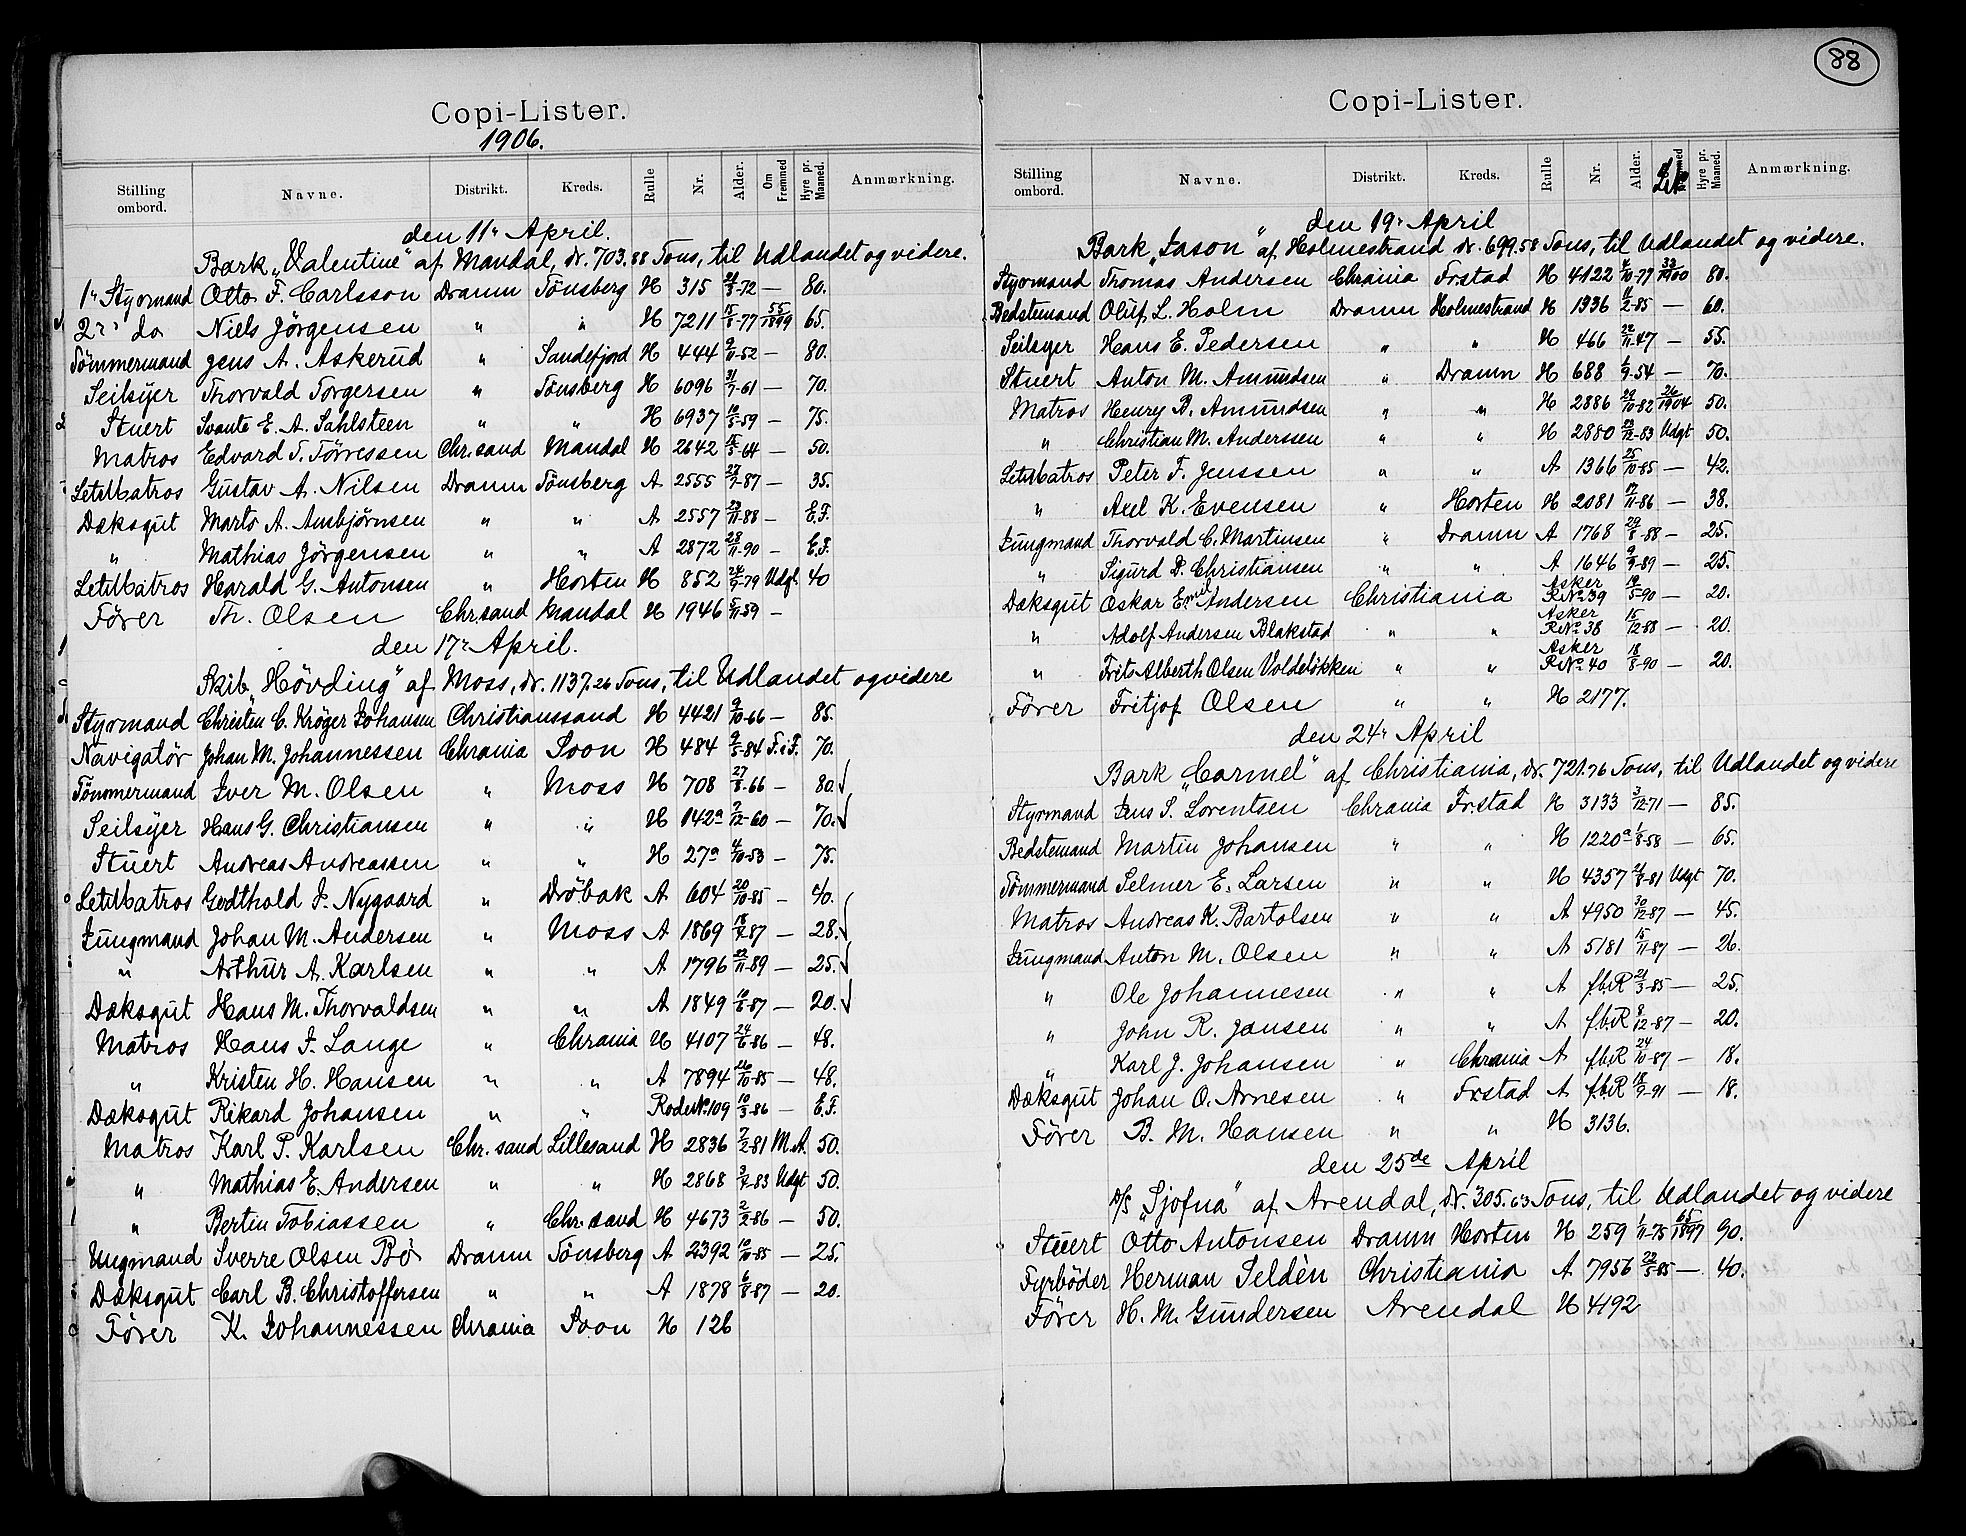 Copi-Lister.
1906.
Stilling ombord. Navne. Distrikt. Kreds. Rulle Nr. Alder. Om Fremmed Hyre pr. Maaned. Anmærkning.
den 11te April.
Bark „Valentine" af Mandal, dr. 703.88 Tons, til Udlandet og videre.
1ste Styrmand Otto F. Carlsson Dramn Tönsberg H 315 -72 — 80.
2den do Niels Jörgensen " " H 7211 15/8-77 55/1899 65.
Tömmermand Jens A. Askerud " Sandefjord H 444 9/11-52 — 80.
Seilsÿer Thorvald Torgersen " Tönsberg H 6096 31/7-61 — 70.
Stuert Svante E. A. Sahlsteen " " H 6937 -59 — 75.
Matros Edvard T. Törressen Chr.sand Mandal H 2642 -64 — 50.
LetMatros Gustav A. Nilsen Dramn Tönsberg A 2555 -87 — 35.
Dæksgut A. Ansbjørnsen " " A 2557 /11-88 — E.F.
" Mathias Jörgensen " " A 2872 28/11-90 - E.F.
LetMatros Harald G. Antonsen " Horten H 852 -79 Udgt. 40
Förer Th. Olsen Chr.sand Mandal H 1946 5/11-59 —
den 17de April.
Skib „Hövding" af Moss, dr. 1137.26 Tons, til Udlandet og videre
Styrmand Christen C. Kröger Johansen Christianssand H 4421 9/10-66 — 85.
Navigatör Johan M. Johannessen Chrania Soon H 484 9/5-84 F.i F. 70.
Tömmermand Iver M. Olsen " Moss H 708 27/8-66 — 80.
Seilsÿer Hans G. Christiansen " " H 142a 7/12-60 — 70.
Stuert Andreas Andreassen " " H 27a 4/10-53 — 75.
LetMatros Godthold I. Nygaard " Dröbak A 604 20/10-85 — 40.
Jungmand Johan M. Andersen " Moss A 1869 -87 — 28.
" Arthur A. Karlsen " " A 1796 22/11-89 — 25.
Dæksgut Hans M. Thorvaldsen " " A 1849 -87 — 20.
Matros Hans J. Lange " Chrania H 4107 24/6-86 — 48.
" Kristen H. Hansen " " A 7894 26/10-85 — 48.
Dæksgut Rikard Johansen " " Rode No. 109 10/3-86 — E.F.
Matros Karl P. Karlsen Chr. sand Lillesand H 2836 7/2-81 M.A. 50.
" Mathias E. Andersen " " H 2868 -83 Udgt 50.
" Bertin Tobiassen " Chr. sand H 4673 2/2-86 — 50.
Ungmand Sverre Olsen Bö Dramn Tönsberg A 2392 /10-85 — 25.
Dæksgut Carl B. Christoffersen " " A 1878 6/8-87 — 20.
Förer K. Johannessen Chrania Soon H 126
88
Copi-Lister.
Stilling ombord. Navne. Distrikt. Kreds. Rulle Nr. Alder. Hyre pr. Maaned. Anmærkning.
den 19de April
Bark „Jason" af Holmestrand dr. 699.58 Tons, til Udlandet og videre.
Styrmand Thomas Andersen Chrania Frstad H 4122 /10-77 32/1900 80.
Bedstemand Oluf L. Holm Dramn Holmestrand H 1936 /2-85 — 60.
Seilsyer Hans E. Pedersen " " H 466 22/11-47 — 55.
Stuert Anton M. Amundsen " Dramn H 688 /9-54 — 70.
Matros Henry B. Amundsen " " H 2886 29/10-82 26/1904 50.
" Christian M. Anderssen " " H 2880 23/12-83 Udgt 50.
LetMatros Peter F. Jenssen " " A 1366 25/10-85 — 42.
" Axel K. Evensen " Horten H 2081 17/11-86 — 38.
Jungmand Thorvald C. Martinsen " Dramn A 1768 29/8-88 — 25.
" Sigurd D. Christiansen " " A 1646 9/9-89 — 25.
Dæksgut Oskar Emil Andersen Christiania Asker R.No. 39 /5-90 — 20.
" Adolf Andersen Blakstad " " Asker R.No. 38 15/12-88 — 20.
" Frits Alberth Olsen Voldeløkken " " Asker R.No. 40 18/8-90 — 20.
Förer Fritjof Olsen " " H 2177.
den 24de April
Bark „Carmel" af Christiania, dr. 721.76 Tons, til Udlandet og videre
Styrmand Jens S. Lorentsen Chrania Frstad H 3133 3/12-71 — 85.
Bedstemand Martin Johansen " " H 1220a 1/8-58 — 65.
Tömmermand Selmer E. Larsen " " H 4357 /8-81 Udgt 70.
Matros Andreas K. Bartolsen " " A 4950 30/12-87 — 45.
Jungmand Anton M. Olsen " " A 5181 15/11-87 — 26.
" Ole Johannesen " " A f.b.R 21/3-85 — 25.
" John R. Jansen " " A f.b.R 8/12-87 — 20.
" Karl J. Johansen " Chrania A f.b.R 24/10-87 — 18.
Dæksgut Johan O. Arnesen " Frstad A f.b.R 18/9-91 — 18.
Förer B. M. Hansen " " H 3136.
den 25de April
D/S „Sjofna" af Arendal, dr. 305.63 Tons, til Udlandet og videre
Stuert Otto Antonsen Dramn Horten H 259 1/11-75 65/1897 90.
Fyrböder Herman Seldèn Christiania A 7956 22/5-85 — 40.
Förer H. M. Gundersen Arendal H 4192